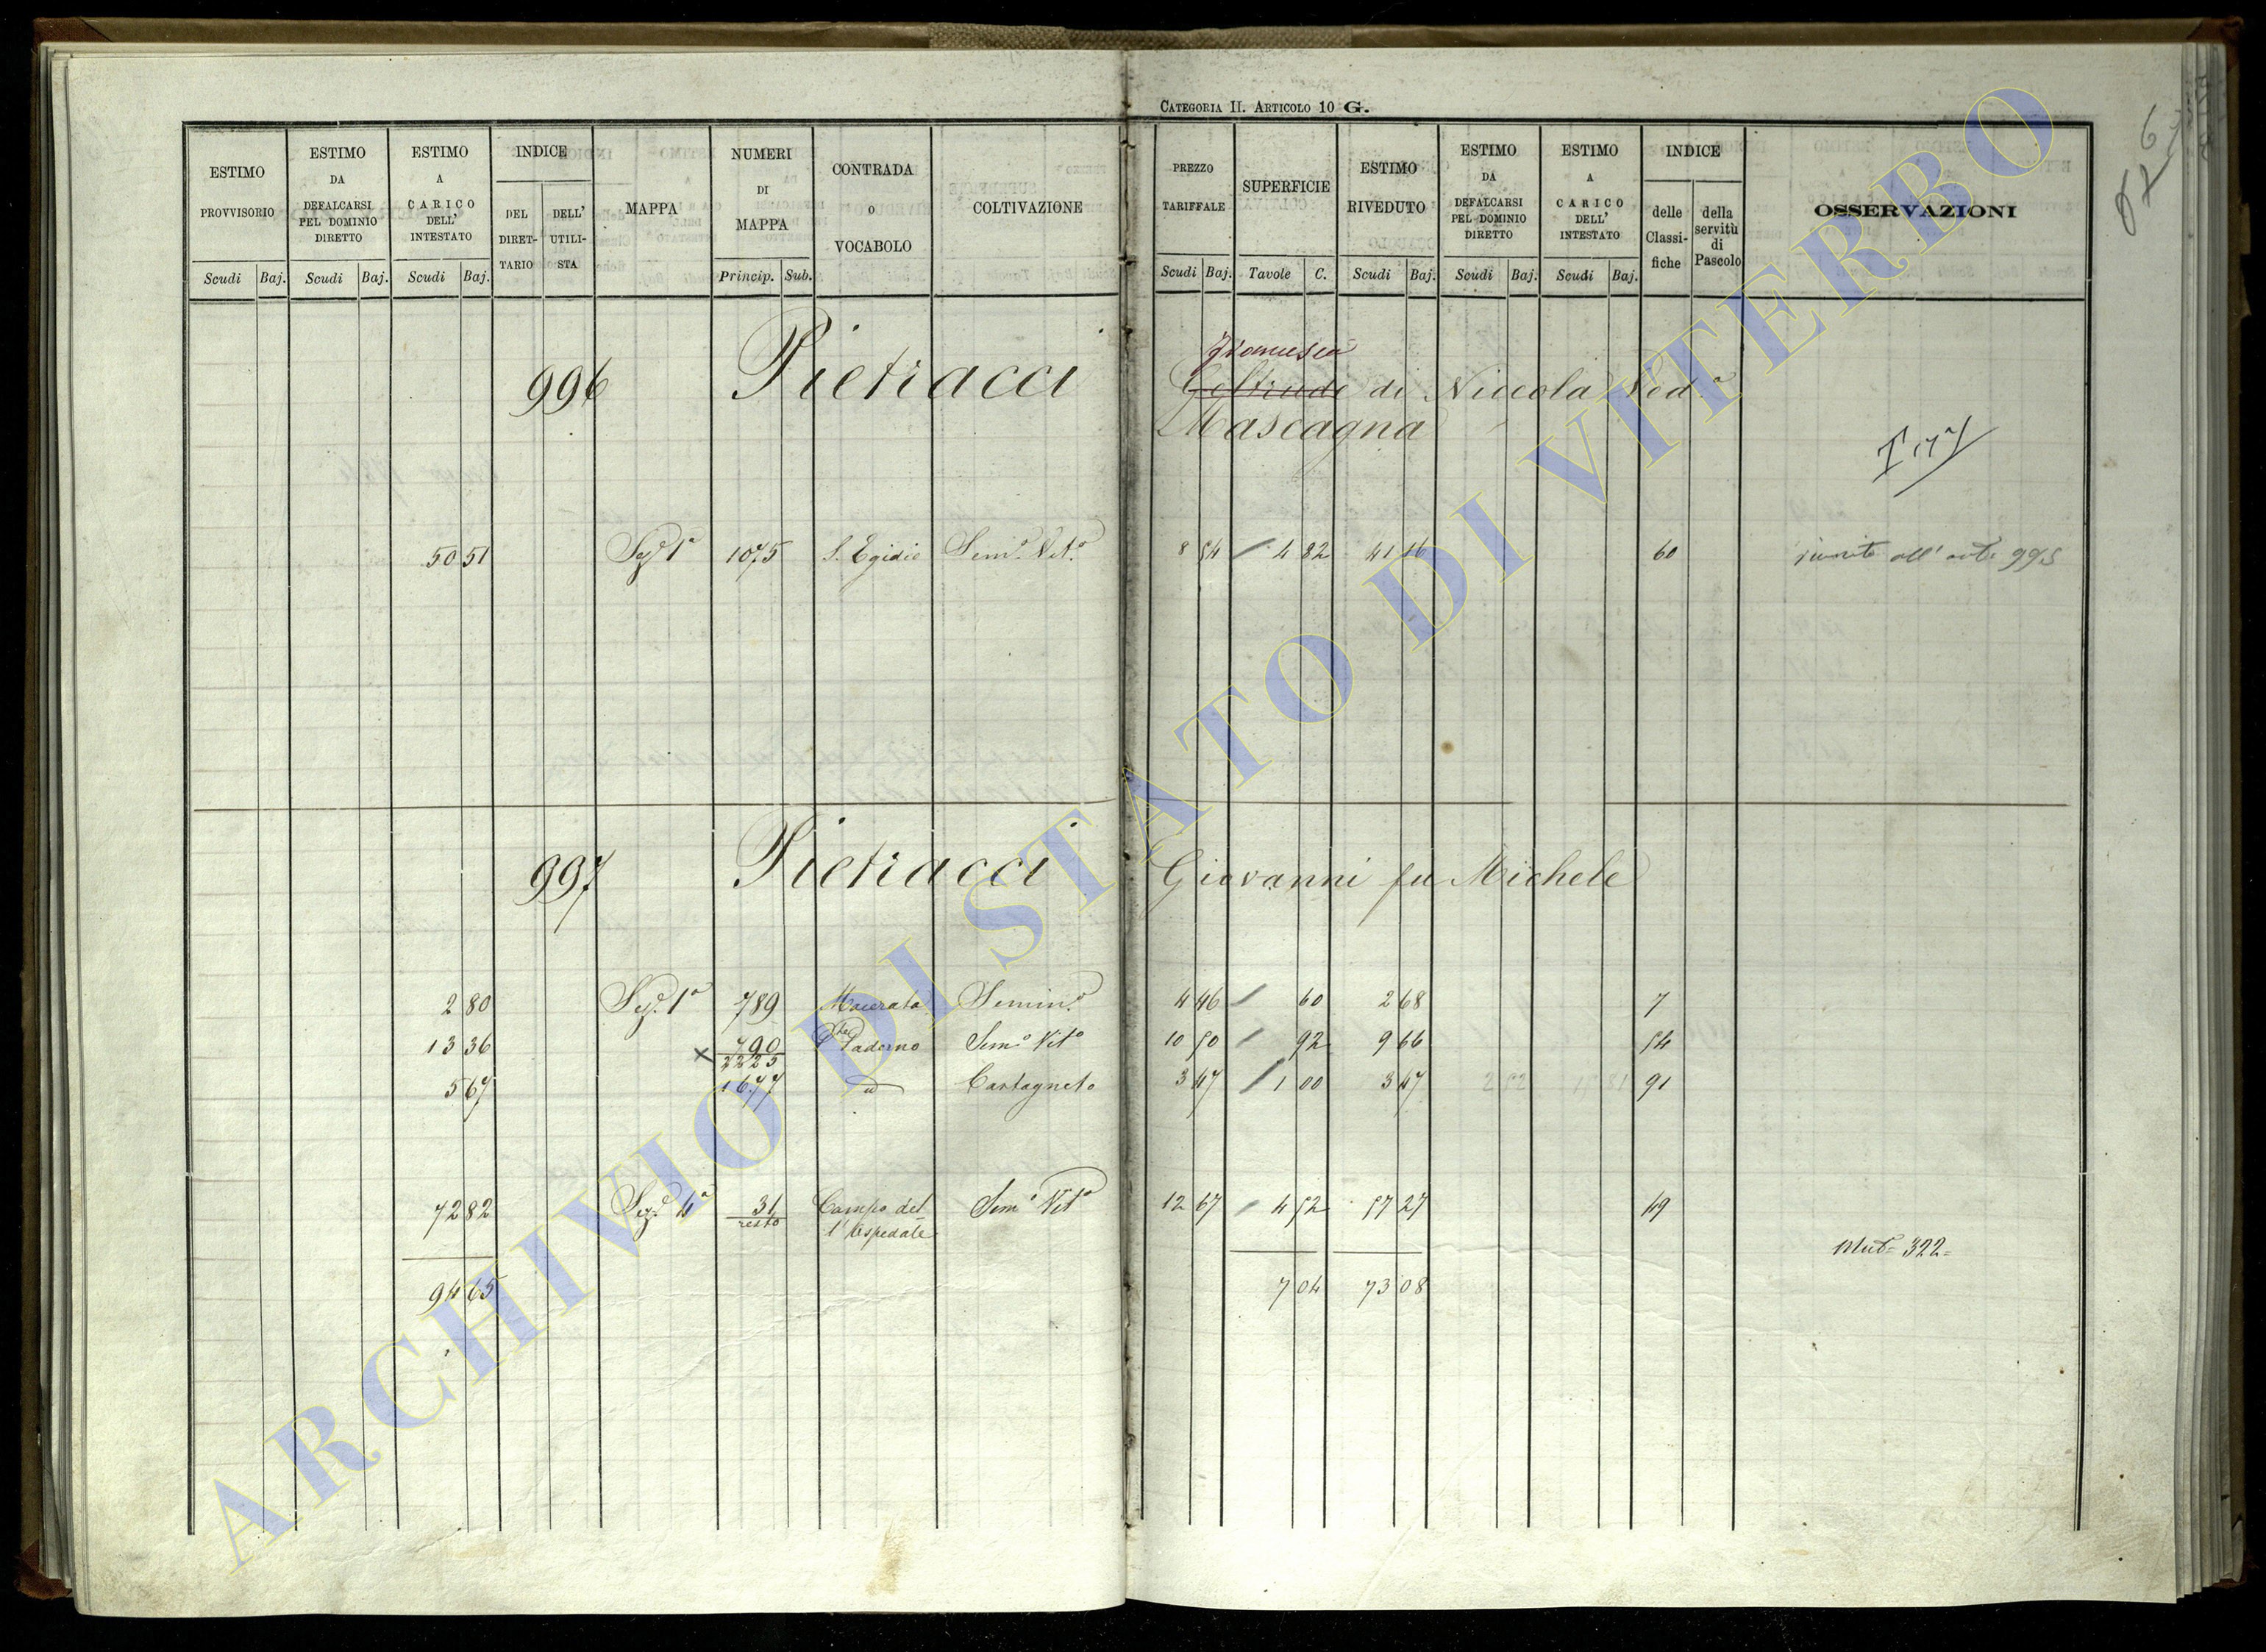 CATEGORIA II. ARTICOLO 10 G.
ESTIMO PROVVISORIO Scudi Baj.
ESTIMO DA DEFALCARSI PEL DOMINIO DIRETTO Scudi Baj.
ESTIMO A CARICO DELL' INTESTATO Scudi Baj.
INDICE DEL DIRETTARIO DELL' UTILISTA
MAPPA
NUMERI DI MAPPA Princip. Sub.
CONTRADA O VOCABOLO
COLTIVAZIONE
PREZZO TARIFFALE Scudi Baj.
SUPERFICIE Tavole C.
ESTIMO RIVEDUTO Scudi Baj.
ESTIMO DA DEFALCARSI PEL DOMINIO DIRETTO Scudi Baj.
ESTIMO A CARICO DELL' INTESTATO Scudi Baj.
INDICE delle Classifiche della servitù di Pascolo
OSSERVAZIONI
Francesca
996 Pietracci Geltrude di Niccola Ved.a
Mascagna
50 51 Sez.e 1a 1075 S. Egidio Sem.o Vit.o 8 54 4 82 41 16 60 riunito all' art. 995
997 Pietracci Giovanni fu Michele
2 80 Sez.e 1a 789 Macerata Semin.o 4 46 60 2 68 7
13 36 x 790 Paderno Sem.o Vit.o 10 50 92 9 66 54
2225
5 67 1677 d Castagneto 3 47 1 00 3 47 91
72 82 Sez.e 4a 31 Campo del Sem.o Vit.o 12 67 4 52 57 27 49
resto l'Ospedale
Mut.e 322=
94 65 7 04 73 08
ARCHIVIO DI STATO DI VITERBO